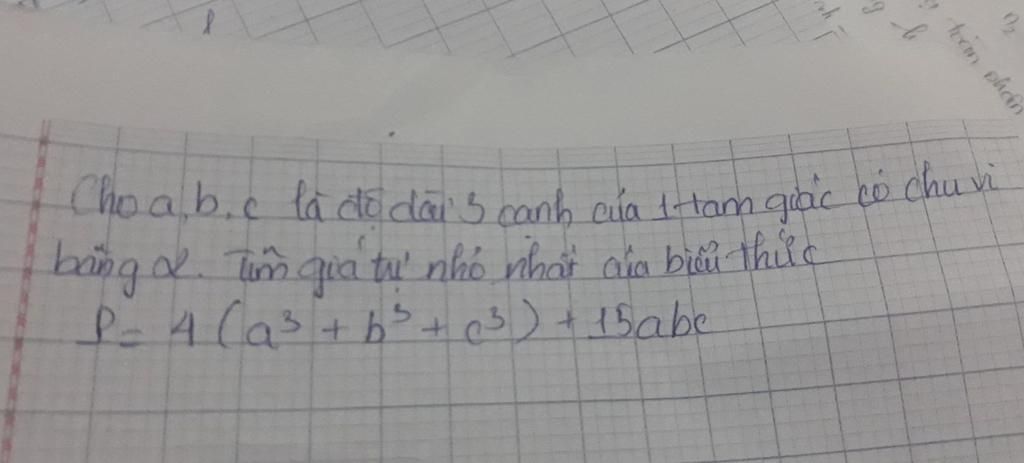 Cho a, b, c là độ dài 3 cạnh của 1 tam giác có chu vi
bằng 2. Tìm giá trị nhỏ nhất của biểu thức
P = 4 (a³ + b³ + c³) + 15abc